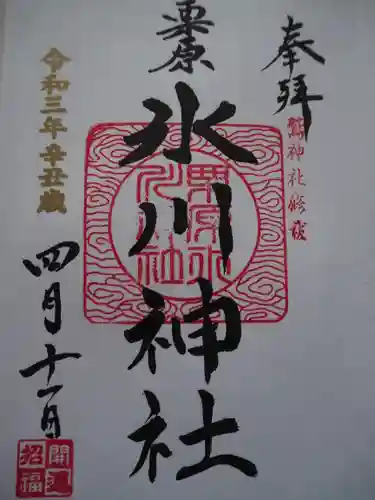 奉拝
鷲神社修󠄁成
栗原
氷川神社
栗原氷川神社
令和三年辛丑歳
四月十一日
開運
招福